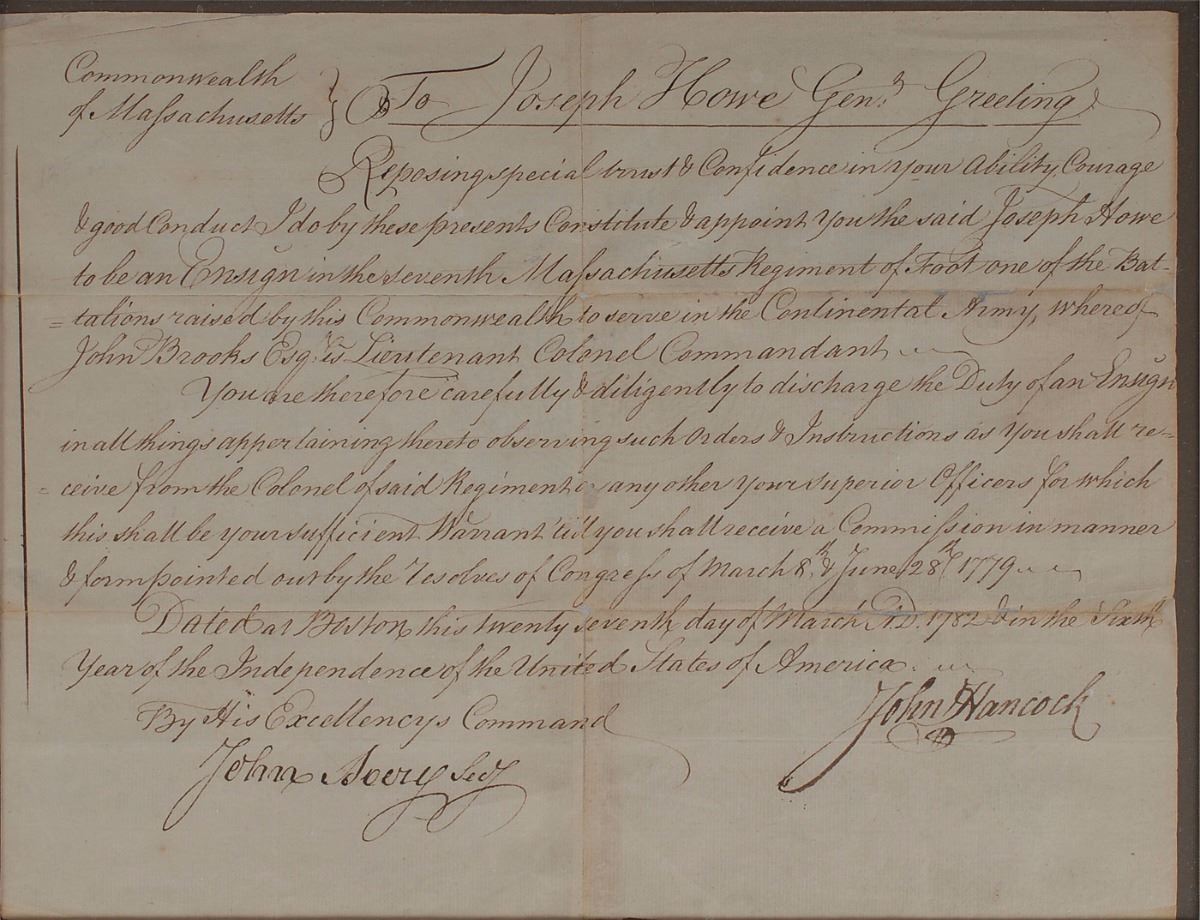 Commonwealth
of Massachusetts } To Joseph Howe Gent. Greeting
Reposing special trust & Confidence in your Ability, Courage
& good Conduct I do by these presents Constitute & appoint You the said Joseph Howe
to be an Ensign in the seventh Massachusetts Regiment of Foot one of the Bat-
=talions raised by this Commonwealth to serve in the Continental Army, whereof
John Brooks Esqr. is Lieutenant Colonel Commandant
You are therefore carefully & diligently to discharge the Duty of an Ensign
in all things appertaining thereto observing such Orders & Instructions as You shall re=
=ceive from the Colonel of said Regiment or any other your superior Officers for which
this shall be your sufficient Warrant 'till you shall receive a Commission in manner
& form pointed out by the resolves of Congress of March 8th. & June 28th. 1779
Dated at Boston this twenty seventh day of March A.D. 1782 & in the Sixth
Year of the Independence of the United States of America.
By His Excellencys Command
John Hancock
John Avery Secy